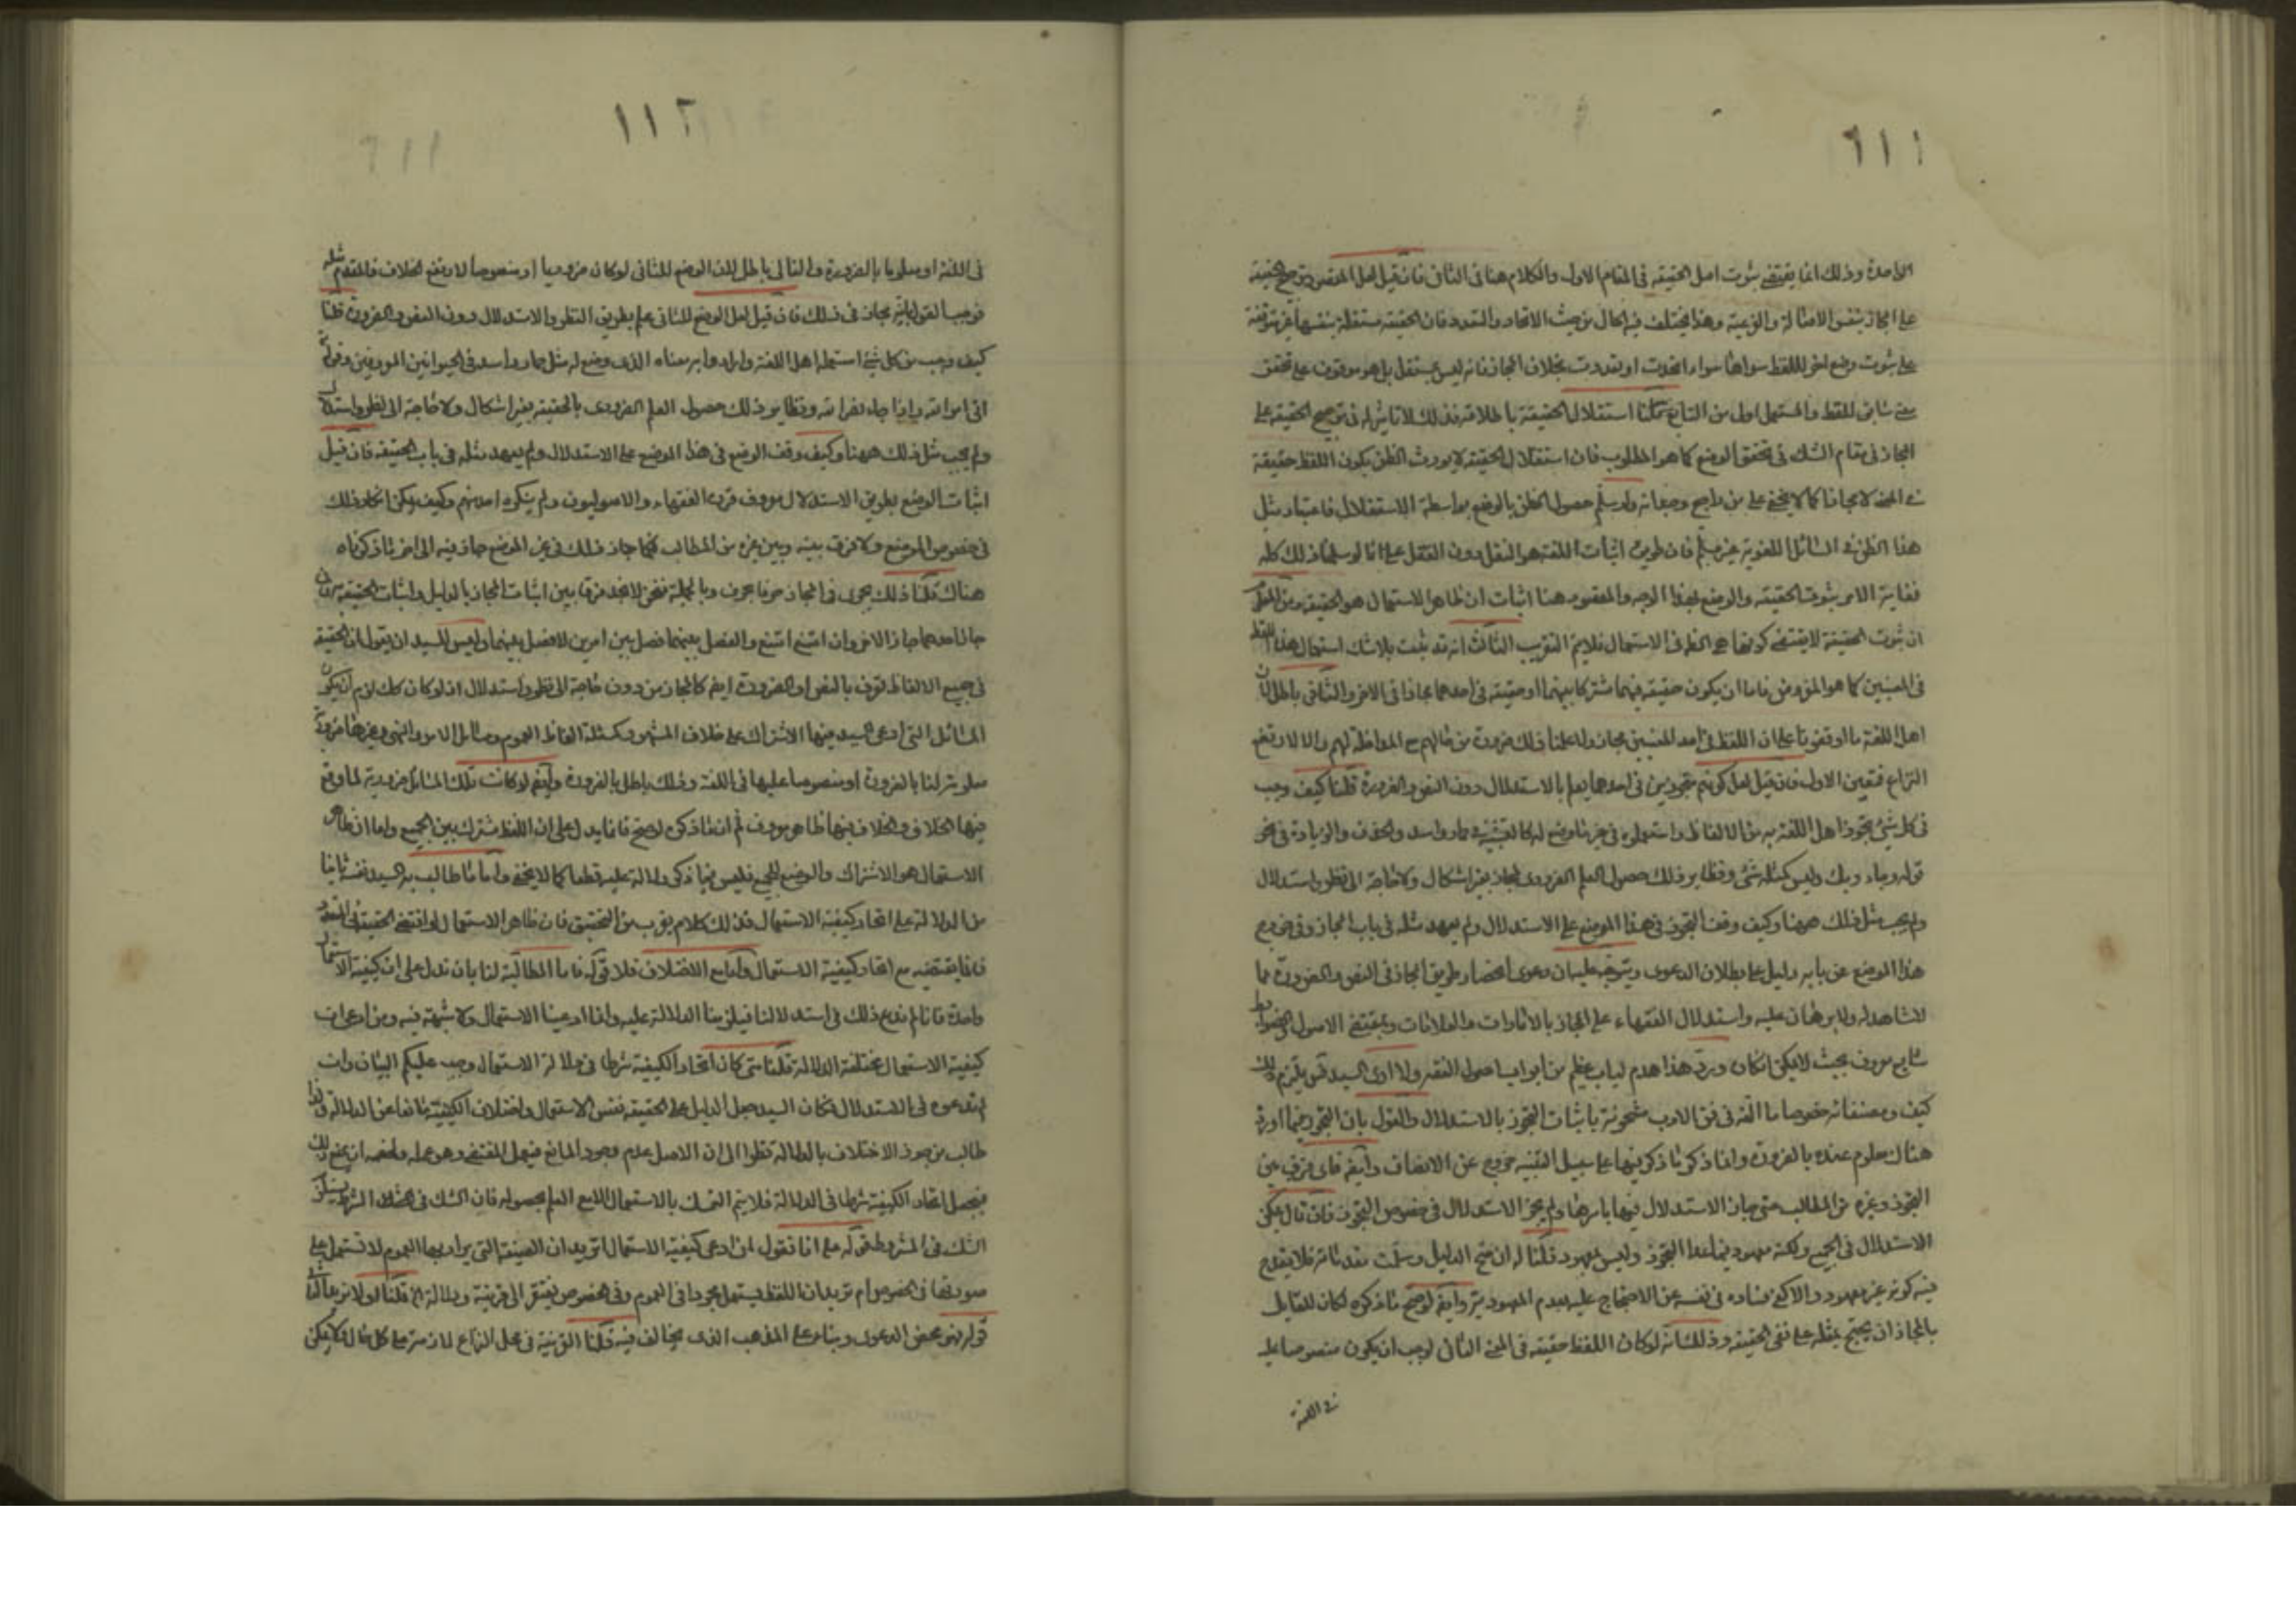 ١١١
الواحدة وذلك انما يقتضى ثبوت اصل الحقيقة فى المقام الاول والكلام هنا فى الثانى فان قيل لعل المقصود ترجيح الحقيقة
على المجاز بنفس الاصالة والفرعية وهذا يختلف فيه الحال من حيث الاتحاد والتعدد فان الحقيقة مستقلة بنفسها غير متوقفة
على ثبوت وضع اخر للفظ سواها سواء اتحدت او تعددت بخلاف المجاز فانه ليس بمستقل بل هو موقوف على تحقق
معنى سابق للفظ والمستعمل اولى من التابع قلنا استقلال الحقيقة باطلاقه فذلك لا تاثير له فى ترجيح الحقيقة على
المجاز فى مقام الشك فى تحقق الوضع كما هو المطلوب فان استقلال الحقيقة لا يورث الظن بكون اللفظ حقيقة
فى المعنى لا مجازا كما لا يخفى على من راجع وجدانه ولو سلم حصول الظن بالوضع بواسطة الاستقلال فاعتبار مثل
هذا الظن فى المسائل اللغوية غير مسلم فان طريق اثبات اللغة هو النقل دون العقل على انا لو سلمنا ذلك كله
فغاية الامر ثبوت الحقيقة والوضع بهذا الوجه والمقصود هنا اثبات ان ظاهر الاستعمال هو الحقيقة ومن المعلوم
ان ثبوت الحقيقة لا يقتضى كونها هى الظاهر فى الاستعمال فلا يتم التقريب الثالث انه قد ثبت بلا شك استعمال هذا اللفظ
فى المعنيين كما هو المفروض فاما ان يكون حقيقة فيهما مشتركا بينهما او حقيقة فى احدهما مجازا فى الاخر والثانى باطل لان
اهل اللغة ما اوقفونا على ان اللفظ فى احد المعنيين مجاز ولا علمنا ذلك ضرورة من حالهم مع المداخلة لهم والا لارتفع
النزاع فتعين الاول فان قيل لعل كونهم متجوزين فى احدهما يعلم بالاستدلال دون النص والضرورة قلنا كيف وجب
فى كل شئ تجوز اهل اللغة به من الالفاظ واستعملوه فى غير ما وضع له كالتشبيه فى حمار واسد والحذف والزيادة فى نحو
قوله وجاء ربك وليس كمثله شئ ونظاير ذلك حصول العلم الضرورى بالمجاز بغير اشكال ولا حاجة الى نظر واستدلال
ولم يجب مثل ذلك ههنا وكيف وقف التجوز فى هذا الموضع على الاستدلال ولم يعهد مثله فى باب المجاز وفى خروج
هذا الموضع عن بابه دليل على بطلان الدعوى ويتوجه عليه ان دعوى انحصار طريق المجاز فى النص والضرورة مما
لا شاهد له ولا برهان عليه واستدلال الفقهاء على المجاز بالامارات والعلامات وبمقتضى الاصول والضوابط
شايع معروف بحيث لا يمكن انكاره ورد هذا هدم لباب عظيم من ابواب اصول الفقه ولا ارى السيد قس يلتزم ذلك
كيف ومصنفاته خصوصا ما الفه فى فن الادب مشحونة باثبات التجوز بالاستدلال والقول بان التجوز فيما اورد
هناك معلوم عنده بالضرورة وانما ذكر ما ذكر فيها على سبيل التنبيه خروج عن الانصاف وايضا فاى فرق بين
التجوز وغيره من المطالب حتى جاز الاستدلال فيها باسرها ولم يجز الاستدلال فى خصوص التجوز فان قال يمكن
الاستدلال فى الجميع ولكنه معهود فيما عدا التجوز وليس بمعهود قلنا له ان صح الدليل وسلمت مقدماته فلا يقدح
فيه كونه غير معهود والا كفى فساده فى نفسه عن الاحتجاج عليه بعدم المعهودية وايضا لو صح ما ذكره لكان للقايل
بالمجاز ان يحتج بمثله على نفى الحقيقة وذلك انه لو كان اللفظ حقيقة فى المعنى الثانى لوجب ان يكون منصوصا عليه
فى اللغة
١١٢
فى اللغة او معلوما بالضرورة والتالى باطل لان الوضع للثانى لو كان ضروريا او منصوصا لارتفع الخلاف فالمقدم مثله
فوجب القول بانه مجاز فى ذلك فان قيل لعل الوضع للثانى علم بطريق النظر والاستدلال دون النص والضرورة قلنا
كيف وجب من كل شئ استعمله اهل اللغة وارادوا به معناه الذى وضع له مثل حمار واسد فى الحيوانين المعروفين وقوله
اتى امر الله واذا جاء نصر الله ونظاير ذلك حصول العلم الضرورى بالحقيقة بغير اشكال ولا حاجة الى نظر واستدلال
ولم يجب مثل ذلك ههنا وكيف وقف الوضع فى هذا الموضع على الاستدلال ولم يعهد مثله فى باب الحقيقة فان قيل
اثبات الوضع بطريق الاستدلال معروف قرره الفقهاء والاصوليون ولم ينكره احد منهم وكيف يمكن انكار ذلك
فى خصوص الوضع ولا فرق بينه وبين غيره من المطالب فكما جاز ذلك فى غير الوضع جاز فيه الى اخر ما ذكرناه
هناك قلنا ذلك يجرى فى المجاز حرفا بحرف وبالجملة فنحن لا نجد فرقا بين اثبات المجاز بالدليل واثبات الحقيقة به فان
جاز احدهما جاز الاخر وان امتنع امتنع والفصل بينهما فصل بين امرين لا فصل بينهما وليس للسيد ان يقول ان الحقيقة
فى جميع الالفاظ تعرف بالنص او الضرورة ايضا كالمجاز من دون حاجة الى نظر واستدلال اذ لو كان كك لزم ان يكون
المسائل التى ادعى السيد فيها الاشتراك على خلاف المشهور كمسئلة الفاظ العموم ومسائل الامر والنهى وغيرها ضرورية
معلومة لنا بالضرورة او منصوصا عليها فى اللغة وذلك باطل بالضرورة وايضا لو كانت تلك المسائل ضرورية لما وقع
فيها الخلاف والخلاف فيها ظاهر معروف ثم ان ما ذكره لو صح فانما يدل على ان اللفظ مشترك بين الجميع واما ان ظاهر
الاستعمال هو الاشتراك والوضع للجميع فليس فيما ذكره دلالة عليه قطعا كما لا يخفى واما ما طالب به السيد نفسه ثانيا
من الدلالة على اتحاد كيفية الاستعمال فذلك كلام يقرب من التحقيق فان ظاهر الاستعمال لو اقتضى الحقيقة فى المتعدد
فانما يقتضيه مع اتحاد كيفية الاستعمال واما مع الاختلاف فلا قوله فاما المطالبة لنا بان ندل على ان كيفية الاستعمال
واحدة فانا لم ندع ذلك فى استدلالنا فيلزمنا الدلالة عليه وانما ادعينا الاستعمال ولا شبهة فيه ومن ادعى ان
كيفية الاستعمال مختلفة الدلالة قلنا متى كان اتحاد الكيفية شرطا فى دلالة الاستعمال وجب عليكم البيان وان
لم تدعوه فى الاستدلال فكان السيد جعل الدليل على الحقيقة نفس الاستعمال واختلاف الكيفية مانعا عن الدلالة ولذا
طالب من جوز الاختلاف بالدلالة نظرا الى ان الاصل عدم وجود المانع فيعمل المقتضى وهو عمله ولخصمه ان يمنع ذلك
فيجعل اتحاد الكيفية شرطا فى الدلالة فلا يتم التمسك بالاستعمال الا مع العلم بحصوله فان الشك فى الشرط يستلزم
الشك فى المشروط قوله على انا نقول لمن ادعى كيفية الاستعمال اتريد ان الصيغة التى يراد بها العموم لا تستعمل على
صورتها فى الخصوص ام تريد ان اللفظ يستعمل مجردا فى العموم وفى الخصوص يفتقر الى قرينة ودلالة
قوله فهو محض الدعوى وبناء على المذهب الذى يخالف فيه قلنا القرينة فى محل النزاع لازمة على كل حال فلا يمكن